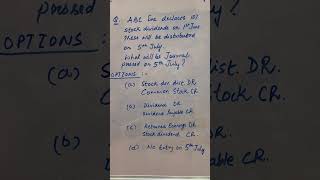 Q. ABC Inc declares 10%
stock dividends on 1st June
These will be distributed
on 5th July.
What will be Journal
passed on 5th July?
OPTIONS :-
(a) Stock div. dist. DR.
Common Stock CR.
(b) Dividend DR
Dividend Payable CR.
(c) Retained Earnings DR.
Stock dividend CR.
(d) No Entry on 5th July